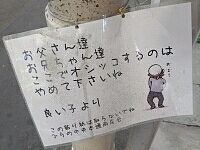 お父さん達
おじちゃん達
ここでオシッコするのは
やめて下さいね
良い子より
この貼り紙は取らないでね